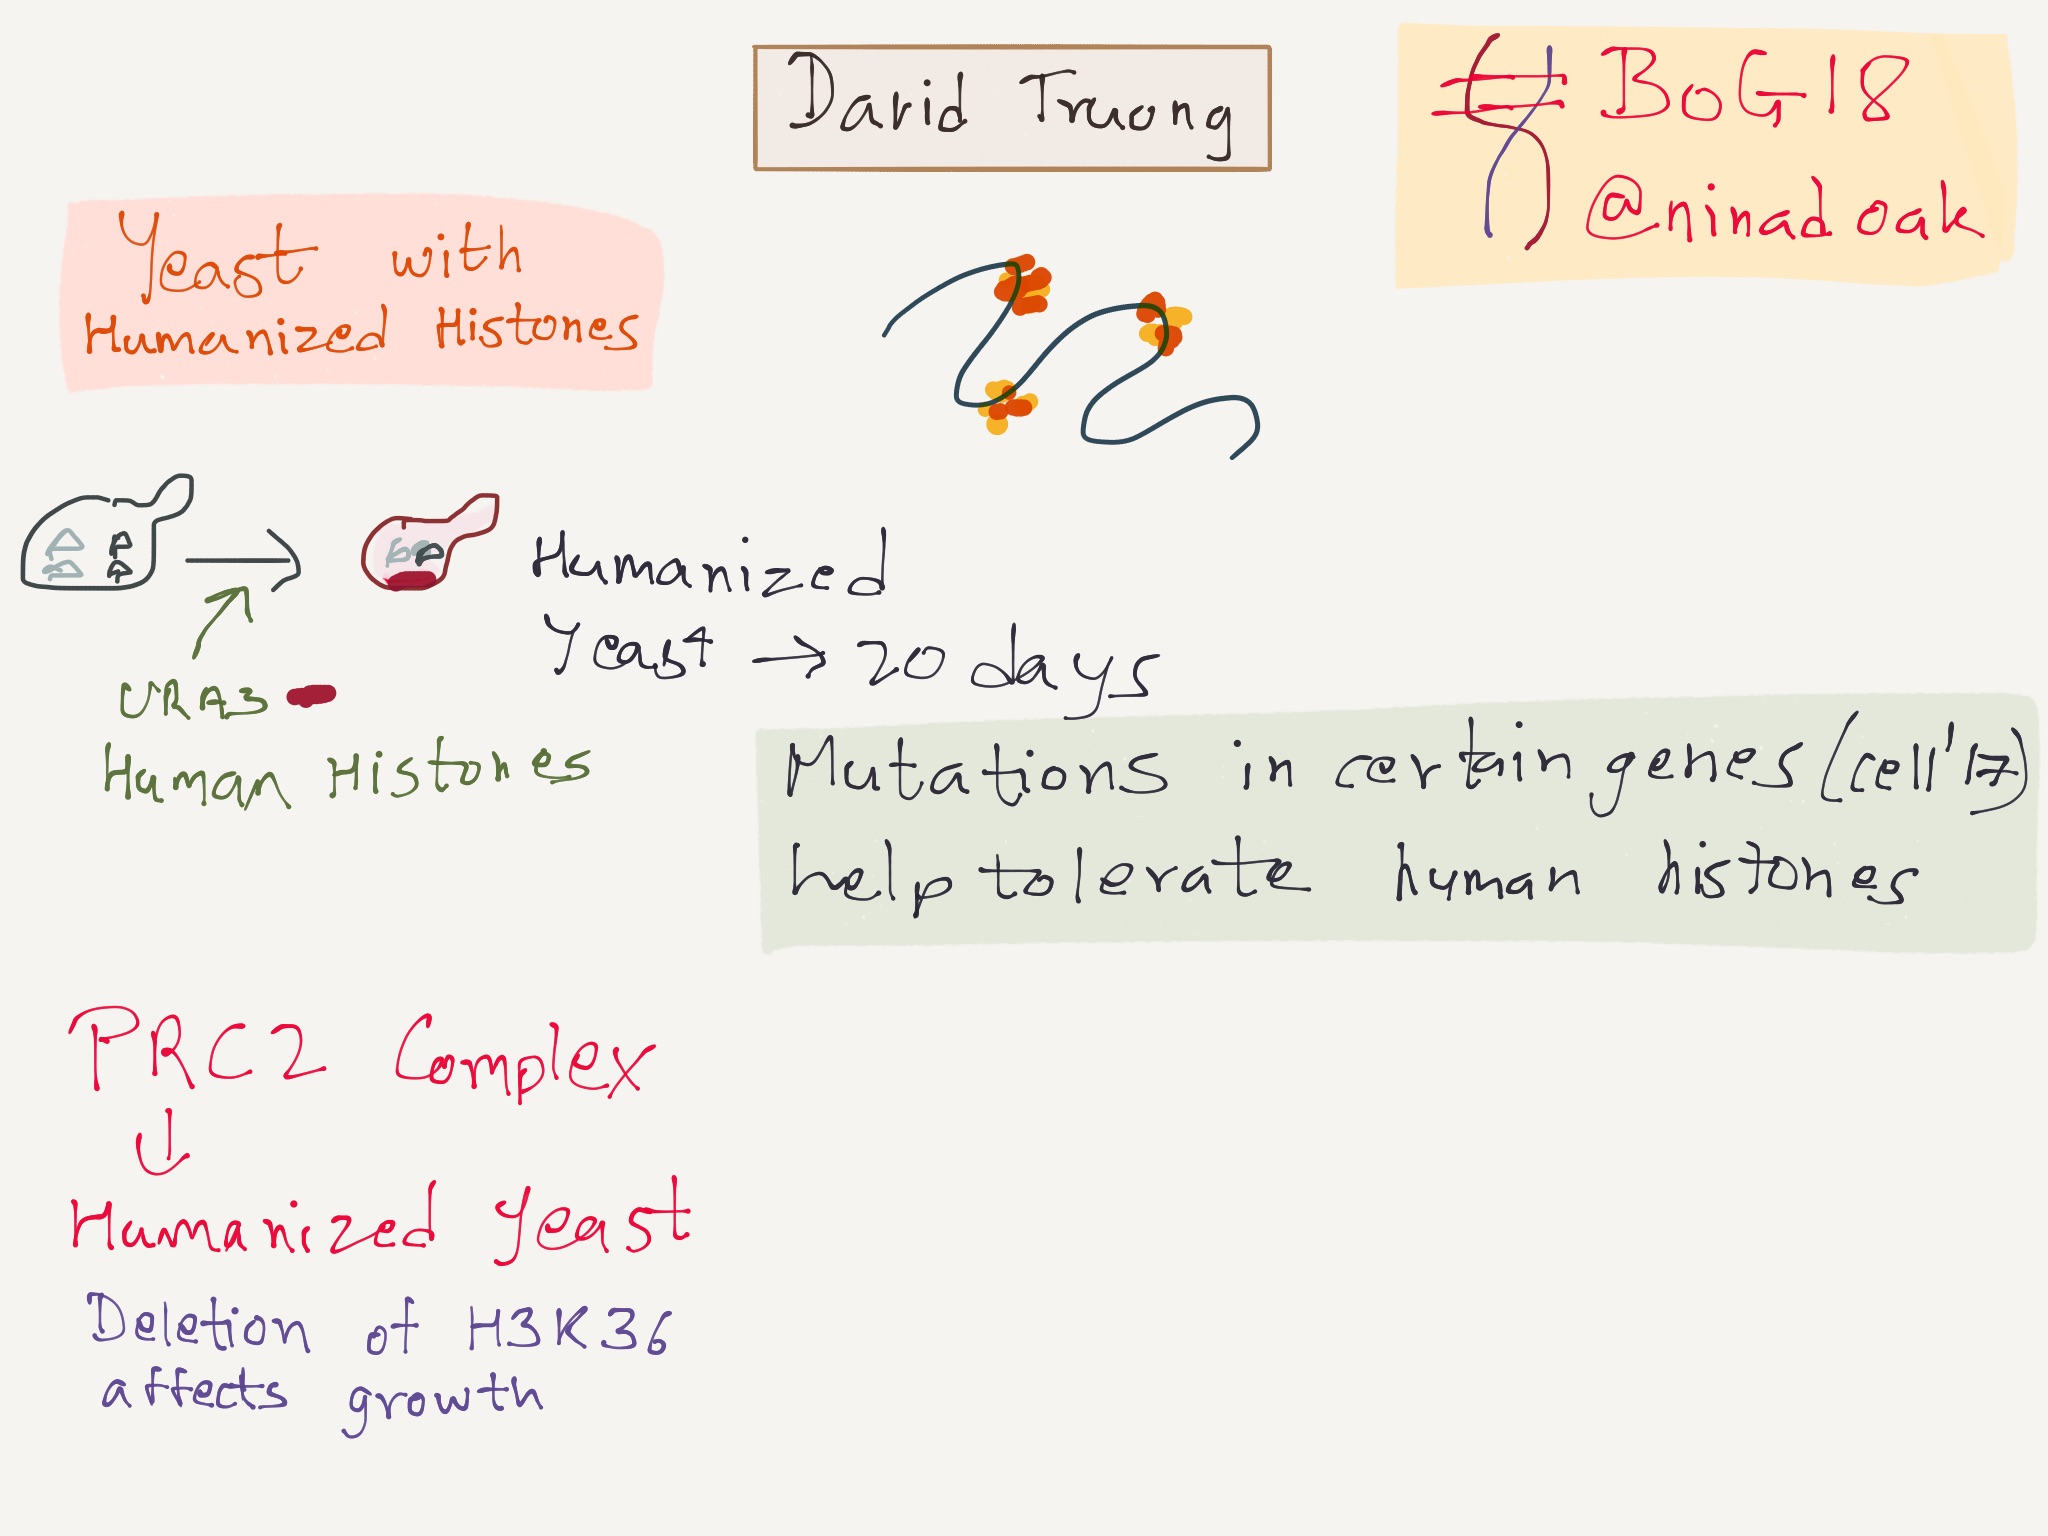 David Truong
#BoG18
@ninadoak
Yeast with
Humanized Histones
Humanized
Yeast → 20 days
URA3
Human Histones
Mutations in certain genes (cell'17)
help tolerate human histones
PRC2 Complex
↓
Humanized Yeast
Deletion of H3K36
affects growth